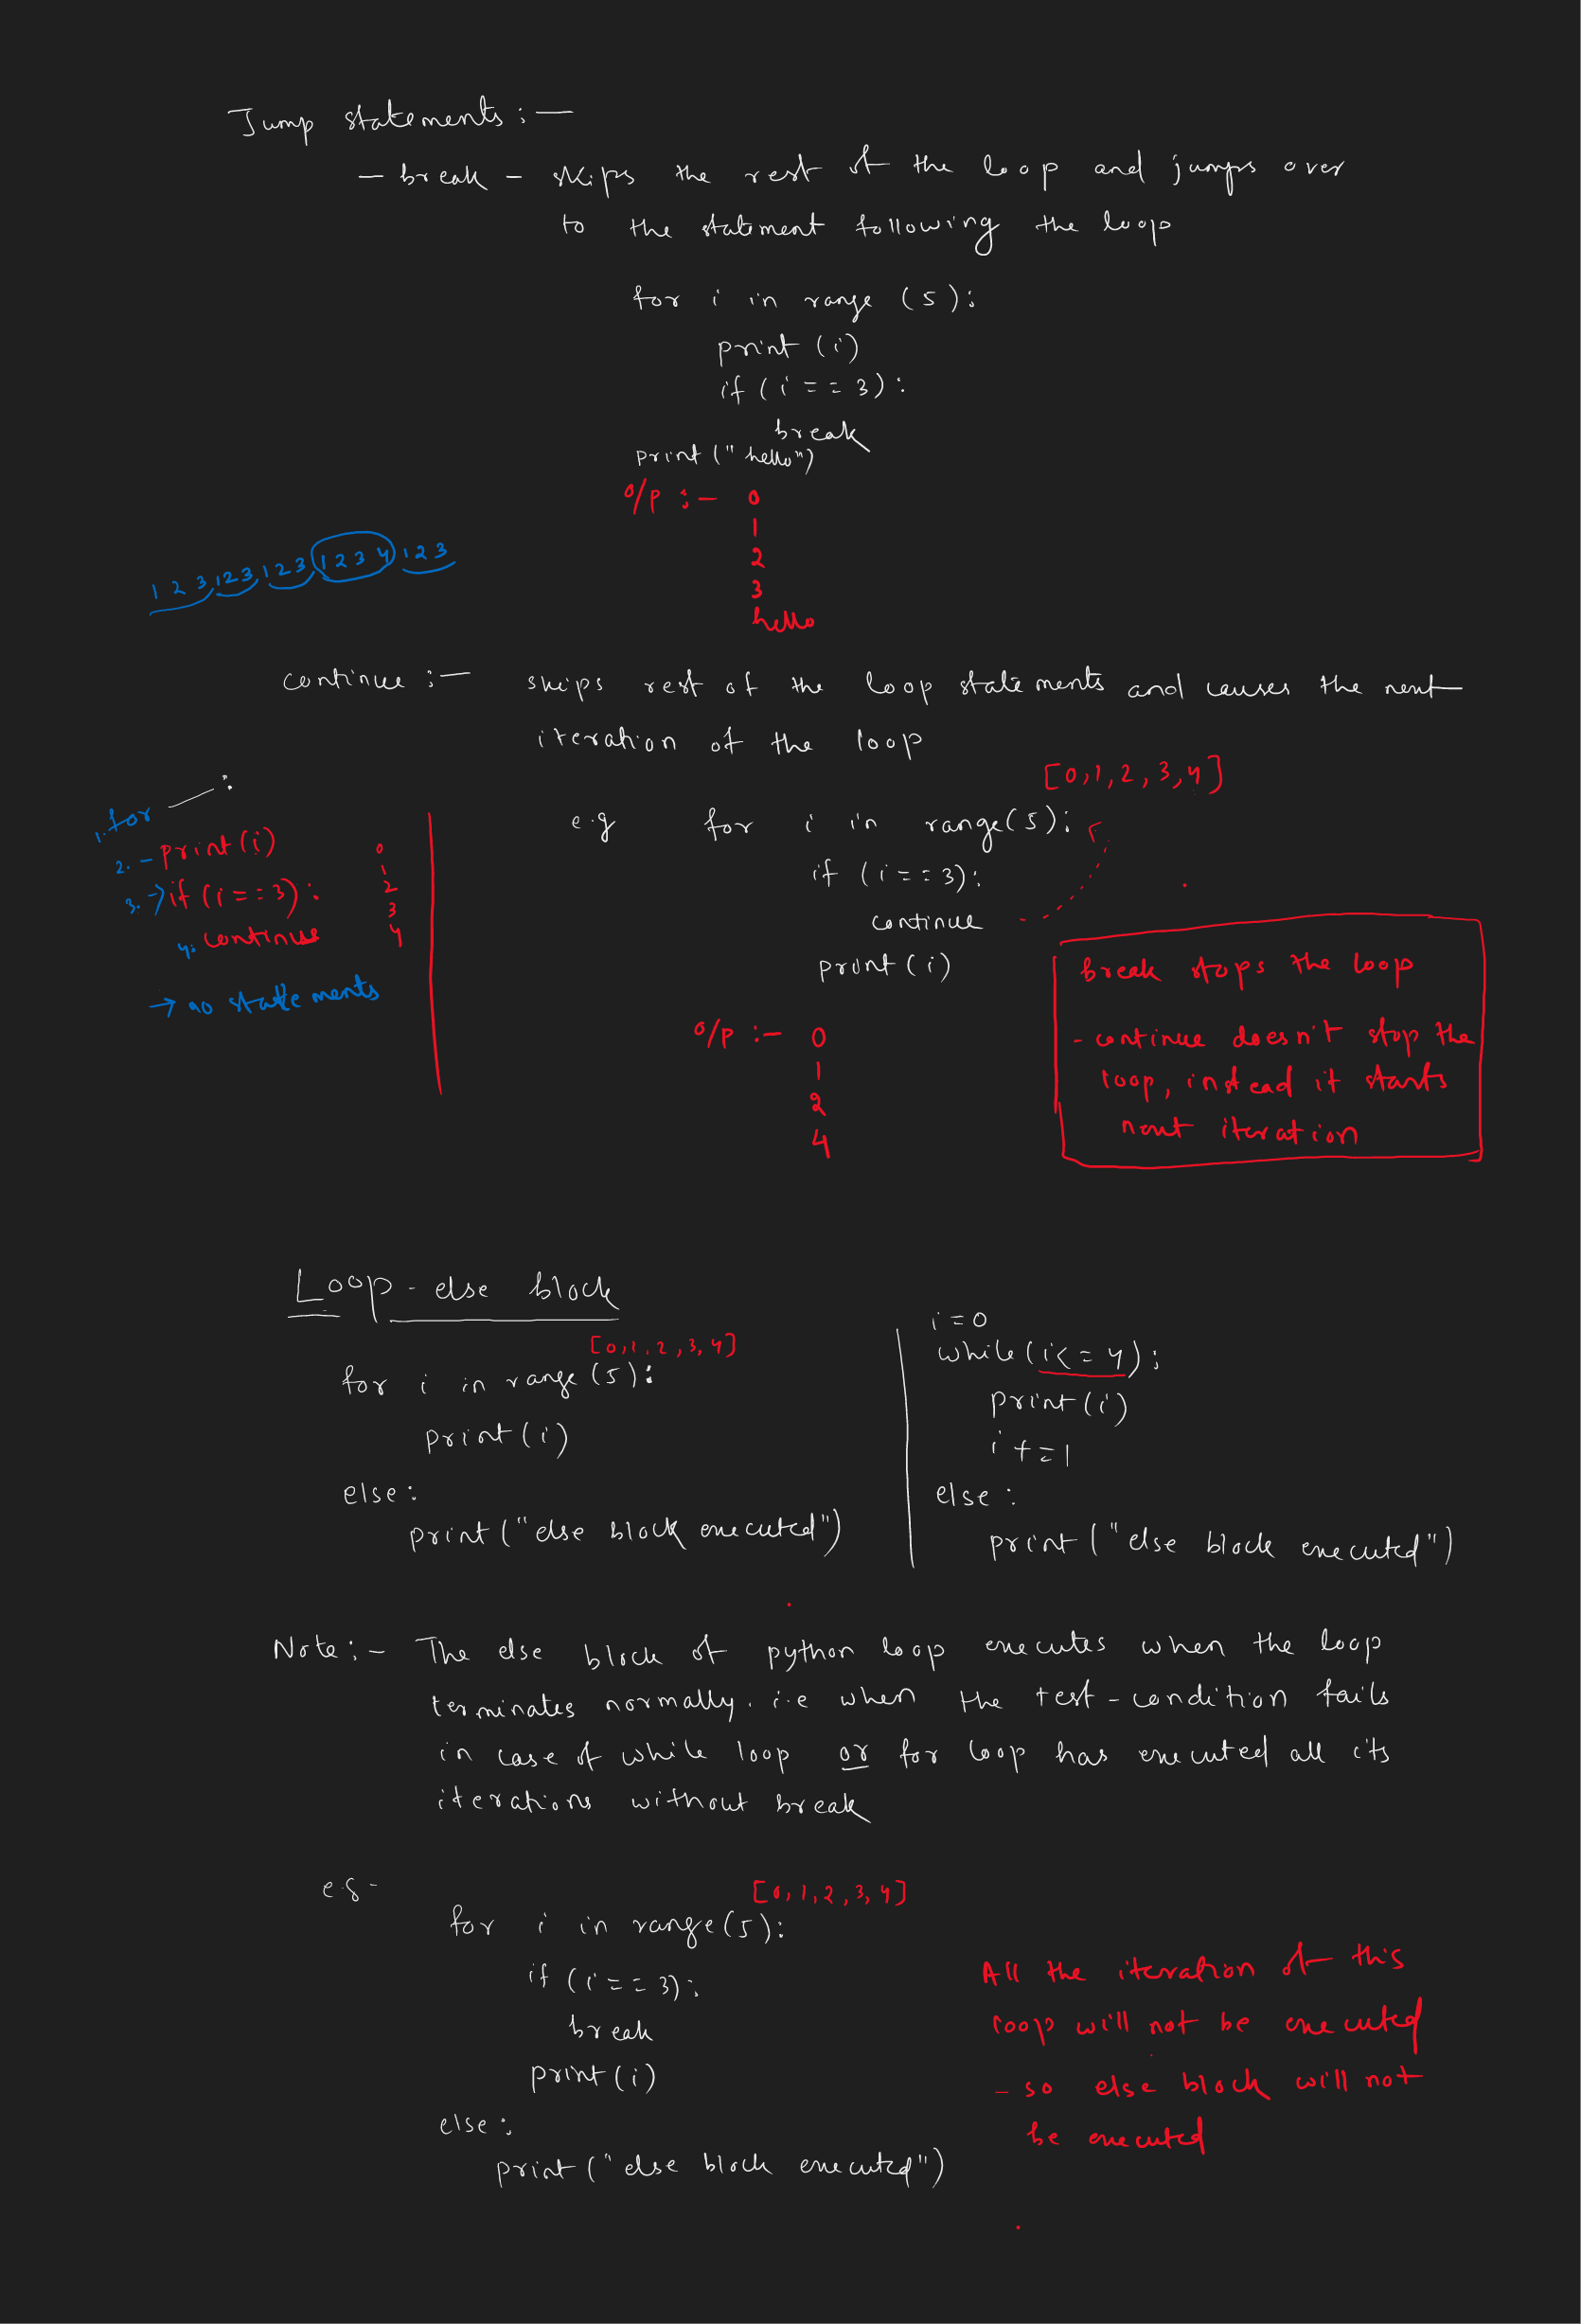 Jump statements :-
- break - skips the rest of the loop and jumps over
to the statement following the loop
for i in range (5):
print (i)
if (i == 3):
break
print ("hello")
o/p :- 0
1
2
3
hello
1 2 3, 1 2 3, 1 2 3 1 2 3 4 1 2 3
continue :- skips rest of the loop statements and causes the next
iteration of the loop
1. for — :
2. - print(i)
3. → if (i == 3) :
4. continue
→ no statements
0
1
2
3
4
[0,1,2,3,4]
e.g for i in range(5):
if (i == 3):
continue
print (i)
o/p :- 0
1
2
4
break stops the loop
- continue doesn't stop the
loop, instead it starts
next iteration
Loop - else block
[0,1,2,3,4]
for i in range (5):
print (i)
else:
print ("else block executed")
i = 0
while (i <= 4):
print (i)
i += 1
else :
print ("else block executed")
Note :- The else block of python loop executes when the loop
terminates normally. i.e when the test-condition fails
in case of while loop or for loop has executed all its
iterations without break
e.g -
[0,1,2,3,4]
for i in range(5):
if (i == 3):
break
print (i)
else:
print ("else block executed")
All the iteration of this
loop will not be executed
- so else block will not
be executed